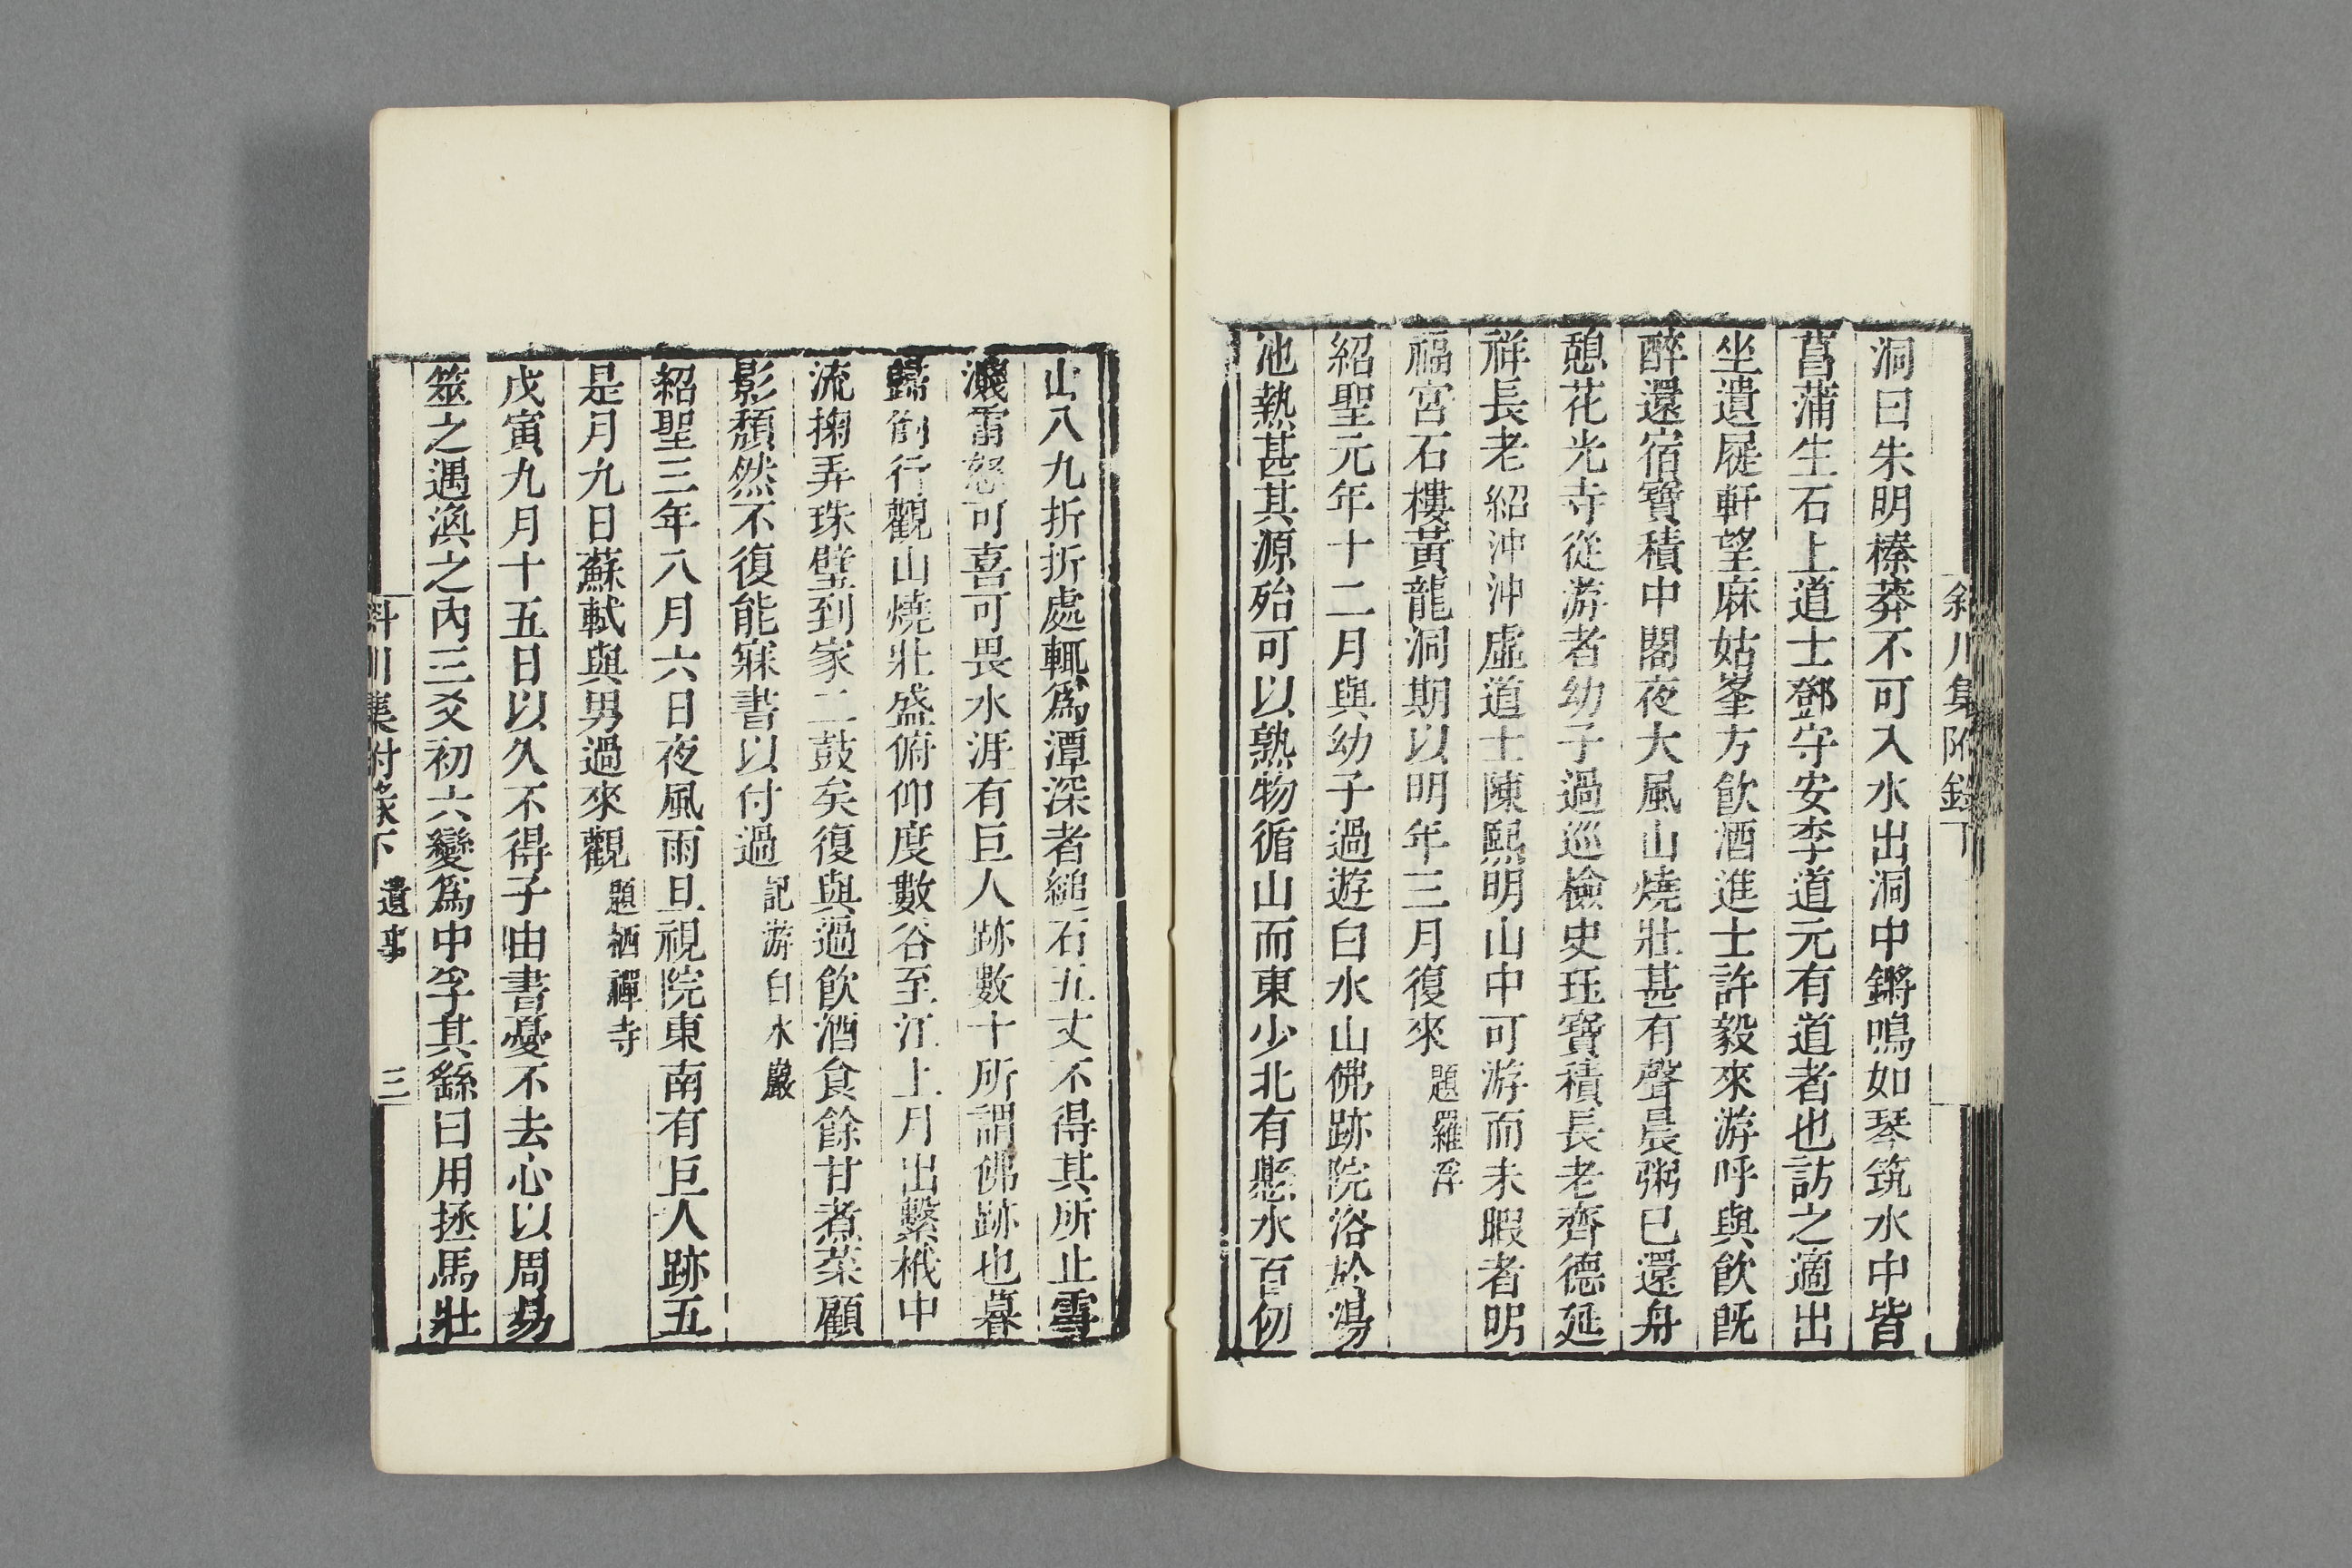 斜川集附錄下
洞曰朱明榛莽不可入水出洞中鏘鳴如琴筑水中皆
菖蒲生石上道士鄧守安李道元有道者也訪之適出
坐遺屣軒望麻姑峯方飲酒進士許毅來游呼與飲旣
醉還宿寶積中閣夜大風山燒壯甚有聲晨粥已還舟
憩花光寺從游者幼子過巡檢史珏寶積長老齊德延
祥長老紹沖沖虛道士陳熙明山中可游而未暇者明
福宮石樓黃龍洞期以明年三月復來 題羅浮
紹聖元年十二月與幼子過遊白水山佛跡院浴於湯
池熱甚其源殆可以熟物循山而東少北有懸水百仞
山八九折折處輒爲潭深者縋石五丈不得其所止雪
濺雷怒可喜可畏水涯有巨人跡數十所謂佛跡也暮
歸倒行觀山燒壯盛俯仰度數谷至江上月出繫栰中
流掬弄珠璧到家二鼓矣復與過飲酒食餘甘煮菜顧
影頹然不復能寐書以付過 記游白水巖
紹聖三年八月六日夜風雨旦視院東南有巨人跡五
是月九日蘇軾與男過來觀 題栖禪寺
戊寅九月十五日以久不得子由書憂不去心以周易
筮之遇渙之內三爻初六變爲中孚其繇曰用拯馬壯
斜川集附錄下 遺事 三